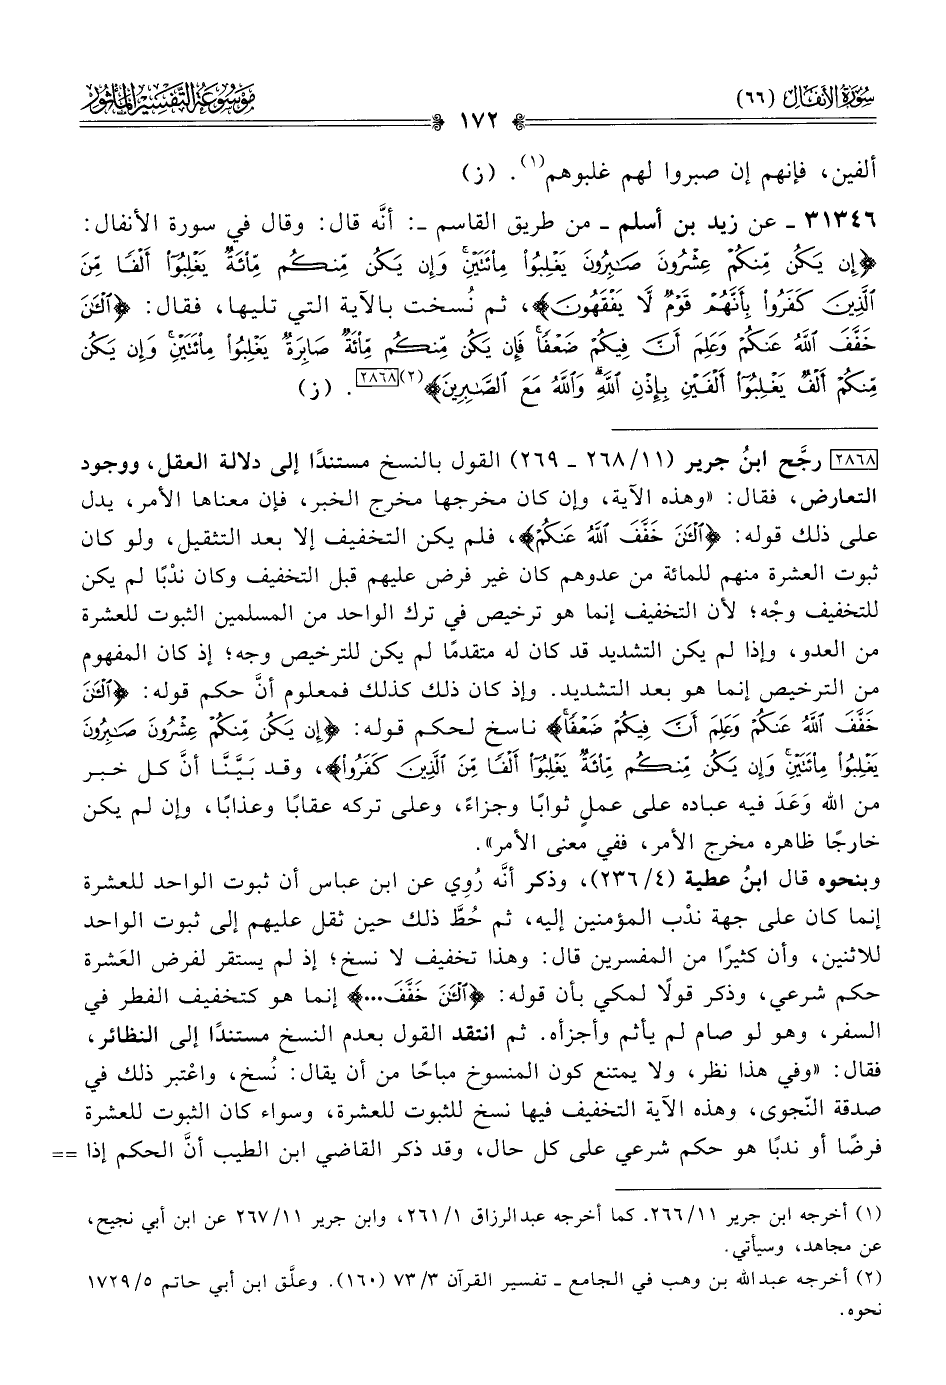 سورة الأنفال (٦٦)
موسوعة التفسير المأثور
١٧٢
ألفين، فإنهم إن صبروا لهم غلبوهم(١). (ز)
٣١٣٤٦ ـ عن زيد بن أسلم ـ من طريق القاسم ـ: أنَّه قال: وقال في سورة الأنفال:
﴿إِن يَكُن مِّنكُمْ عِشْرُونَ صَٰبِرُونَ يَغْلِبُوا۟ مِا۟ئَتَيْنِ ۚ وَإِن يَكُن مِّنكُم مِّا۟ئَةٌ يَغْلِبُوٓا۟ أَلْفًا مِّنَ
ٱلَّذِينَ كَفَرُوا۟ بِأَنَّهُمْ قَوْمٌ لَّا يَفْقَهُونَ﴾، ثم نُسخت بالآية التي تليها، فقال: ﴿ٱلْـَٰٔنَ
خَفَّفَ ٱللَّهُ عَنكُمْ وَعَلِمَ أَنَّ فِيكُمْ ضَعْفًا ۚ فَإِن يَكُن مِّنكُم مِّا۟ئَةٌ صَابِرَةٌ يَغْلِبُوا۟ مِا۟ئَتَيْنِ ۚ وَإِن يَكُن
مِّنكُمْ أَلْفٌ يَغْلِبُوٓا۟ أَلْفَيْنِ بِإِذْنِ ٱللَّهِ ۗ وَٱللَّهُ مَعَ ٱلصَّٰبِرِينَ﴾(٢)[٢٨٦٨]. (ز)
[٢٨٦٨] رجَّح ابنُ جرير (١١/ ٢٦٨ ـ ٢٦٩) القول بالنسخ مستندًا إلى دلالة العقل، ووجود
التعارض، فقال: «وهذه الآية، وإن كان مخرجها مخرج الخبر، فإن معناها الأمر، يدل
على ذلك قوله: ﴿ٱلْـَٰٔنَ خَفَّفَ ٱللَّهُ عَنكُمْ﴾، فلم يكن التخفيف إلا بعد التثقيل، ولو كان
ثبوت العشرة منهم للمائة من عدوهم كان غير فرض عليهم قبل التخفيف وكان ندْبًا لم يكن
للتخفيف وجْه؛ لأن التخفيف إنما هو ترخيص في ترك الواحد من المسلمين الثبوت للعشرة
من العدو، وإذا لم يكن التشديد قد كان له متقدمًا لم يكن للترخيص وجه؛ إذ كان المفهوم
من الترخيص إنما هو بعد التشديد. وإذ كان ذلك كذلك فمعلوم أنَّ حكم قوله: ﴿ٱلْـَٰٔنَ
خَفَّفَ ٱللَّهُ عَنكُمْ وَعَلِمَ أَنَّ فِيكُمْ ضَعْفًا﴾ ناسخ لحكم قوله: ﴿إِن يَكُن مِّنكُمْ عِشْرُونَ صَٰبِرُونَ
يَغْلِبُوا۟ مِا۟ئَتَيْنِ ۚ وَإِن يَكُن مِّنكُم مِّا۟ئَةٌ يَغْلِبُوٓا۟ أَلْفًا مِّنَ ٱلَّذِينَ كَفَرُوا۟﴾، وقد بَيَّنَّا أنَّ كل خبر
من الله وَعَدَ فيه عباده على عملٍ ثوابًا وجزاءً، وعلى تركه عقابًا وعذابًا، وإن لم يكن
خارجًا ظاهره مخرج الأمر، ففي معنى الأمر».
وبنحوه قال ابنُ عطية (٤/ ٢٣٦)، وذكر أنَّه رُوِي عن ابن عباس أن ثبوت الواحد للعشرة
إنما كان على جهة ندْب المؤمنين إليه، ثم حُطَّ ذلك حين ثقل عليهم إلى ثبوت الواحد
للاثنين، وأن كثيرًا من المفسرين قال: وهذا تخفيف لا نسخ؛ إذ لم يستقر لفرض العَشرة
حكم شرعي، وذكر قولًا لمكي بأن قوله: ﴿ٱلْـَٰٔنَ خَفَّفَ...﴾ إنما هو كتخفيف الفطر في
السفر، وهو لو صام لم يأثم وأجزأه. ثم انتقد القول بعدم النسخ مستندًا إلى النظائر،
فقال: «وفي هذا نظر، ولا يمتنع كون المنسوخ مباحًا من أن يقال: نُسخ، واعْتبر ذلك في
صدقة النّجوى، وهذه الآية التخفيف فيها نسخ للثبوت للعشرة، وسواء كان الثبوت للعشرة
فرضًا أو ندبًا هو حكم شرعي على كل حال، وقد ذكر القاضي ابن الطيب أنَّ الحكم إذا ==
(١) أخرجه ابن جرير ١١/ ٢٦٦. كما أخرجه عبدالرزاق ١/ ٢٦١، وابن جرير ١١/ ٢٦٧ عن ابن أبي نجيح،
عن مجاهد، وسيأتي.
(٢) أخرجه عبدالله بن وهب في الجامع ـ تفسير القرآن ٣/ ٧٣ (١٦٠). وعلَّق ابن أبي حاتم ٥/ ١٧٢٩
نحوه.